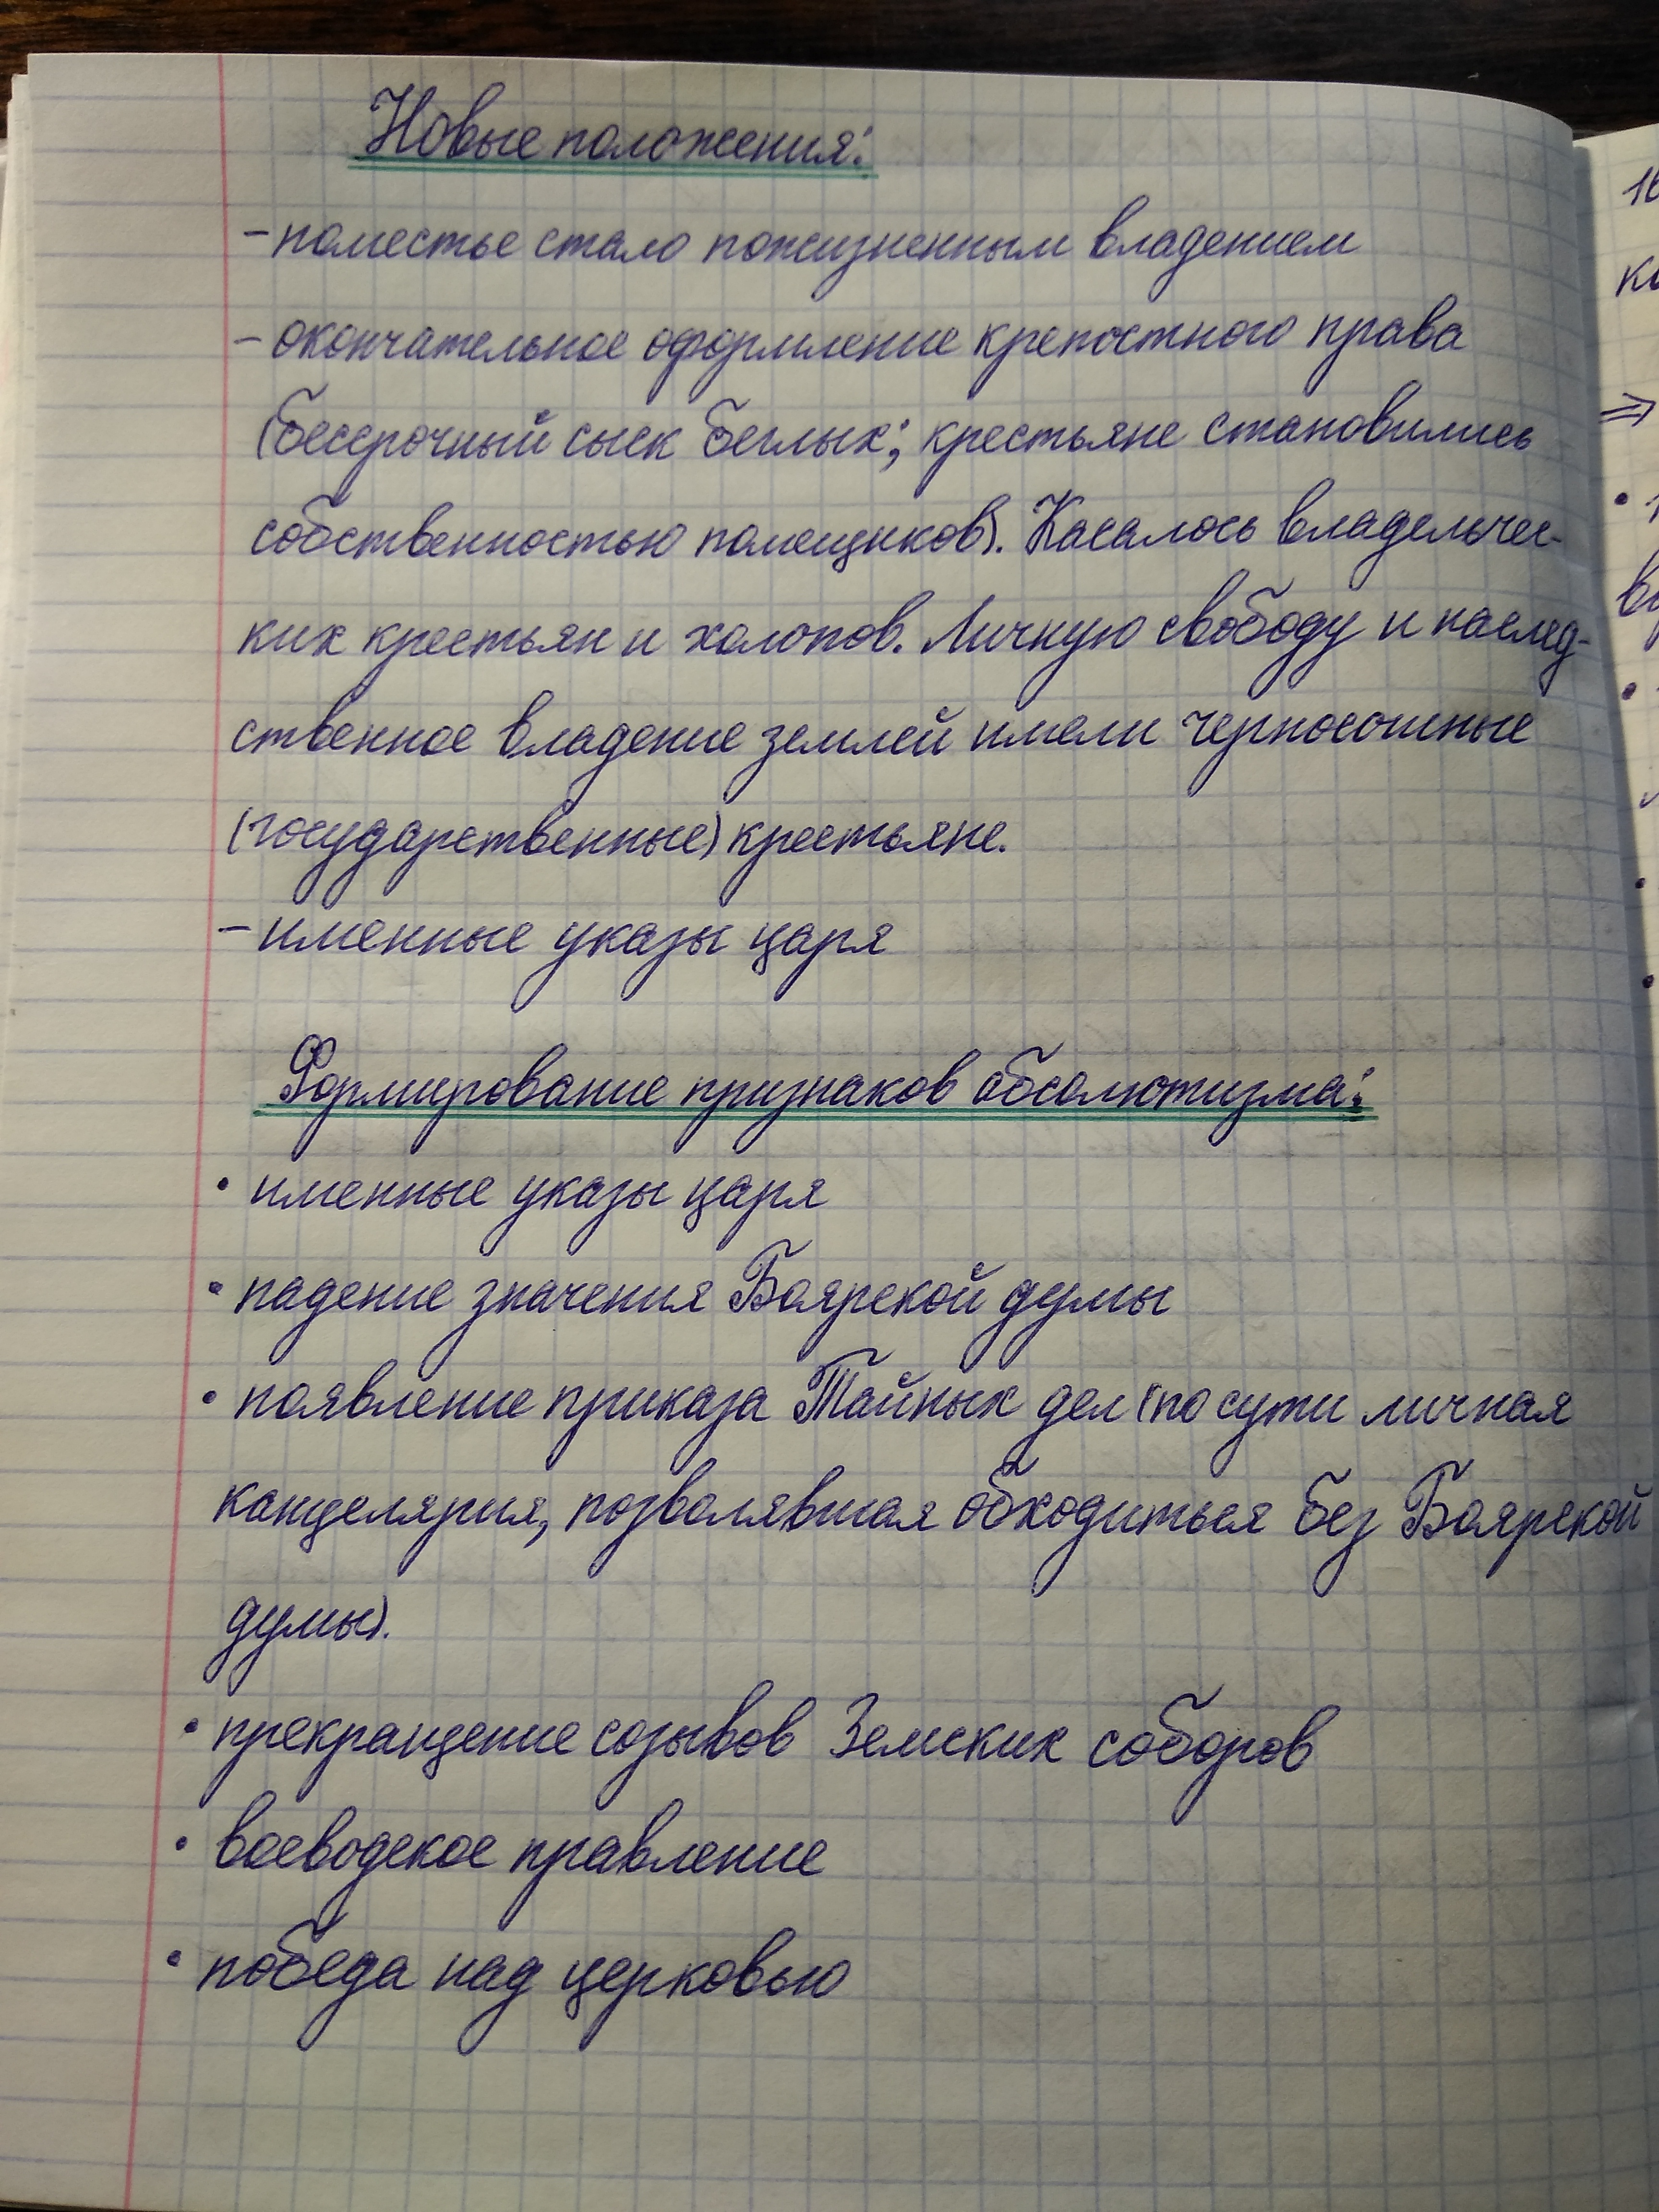 Новые положения:
- поместье стало пожизненным владением
- окончательное оформление крепостного права
(бессрочный сыск беглых; крестьяне становились
собственностью помещиков). Касалось владельчес-
ких крестьян и холопов. Личную свободу и наслед-
ственное владение землей имели черносошные
(государственные) крестьяне.
- именные указы царя
Формирование признаков абсолютизма:
• именные указы царя
• падение значения Боярской думы
• появление приказа Тайных дел (по сути личная
канцелярия, позволявшая обходиться без Боярской
думы).
• прекращение созывов Земских соборов
• воеводское правление
• победа над церковью